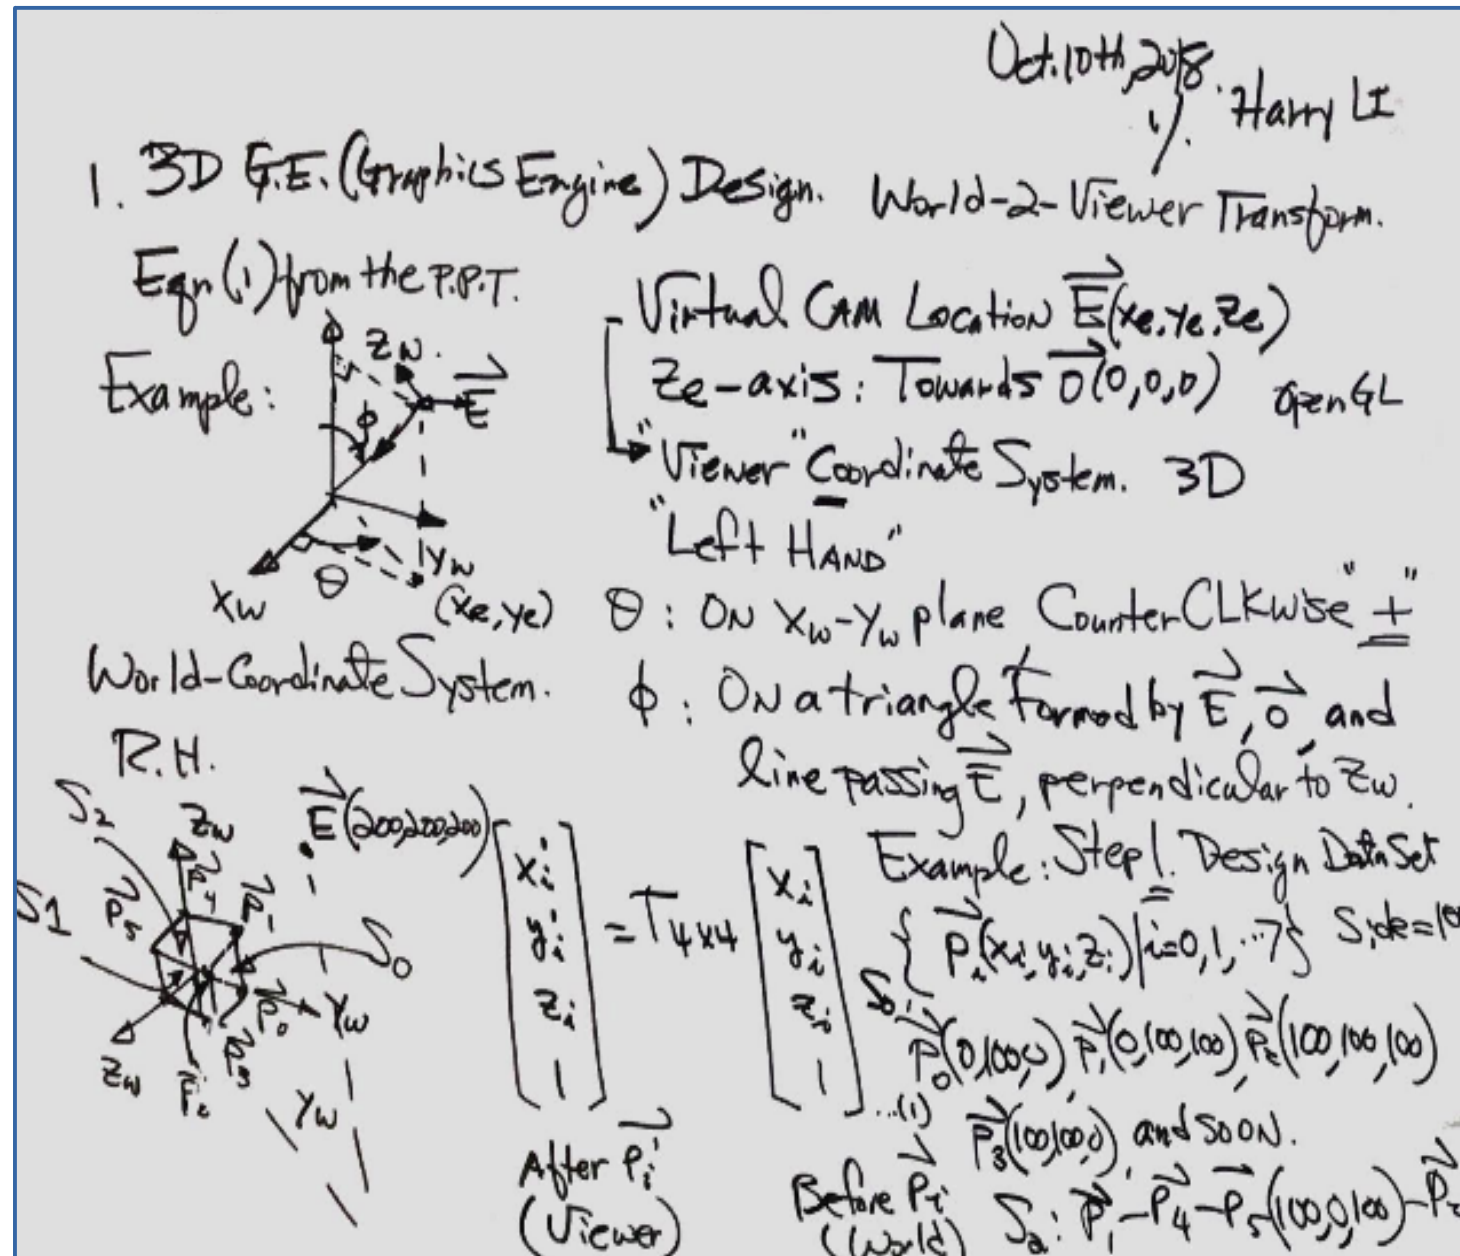 Oct. 10th, 2018.
1/.
Harry LI
1. 3D G.E. (Graphics Engine) Design. World-2-Viewer Transform.
Eqn (1) from the P.P.T.
Example:
Zw.
E
φ
θ
Xw
Yw
(Xe, Ye)
World-Coordinate System.
R.H.
- Virtual CAM Location E(Xe, Ye, Ze)
Ze-axis: Towards O(0,0,0) OpenGL
"Viewer" Coordinate System. 3D
"Left HAND"
θ: ON Xw-Yw plane CounterCLKwise "+"
φ: ON a triangle Formed by E, O, and
line passing E, perpendicular to Zw.
S2
S1
S0
Zw
E(200,200,200)
P5
P1
P0
P3
Yw
Zw
Yw
[xi' yi' zi' 1] = T4x4 [xi yi zi 1] ...(1)
After Pi'
(Viewer)
Before Pi
(World)
Example: Step 1. Design Data Set
{Pi(xi, yi, zi) | i=0,1,...7} Side=100
S0: P0(0,100,0), P1(0,100,100), P2(100,100,100)
P3(100,100,0), and so on.
S2: P1-P4-P5(100,0,100)-P2